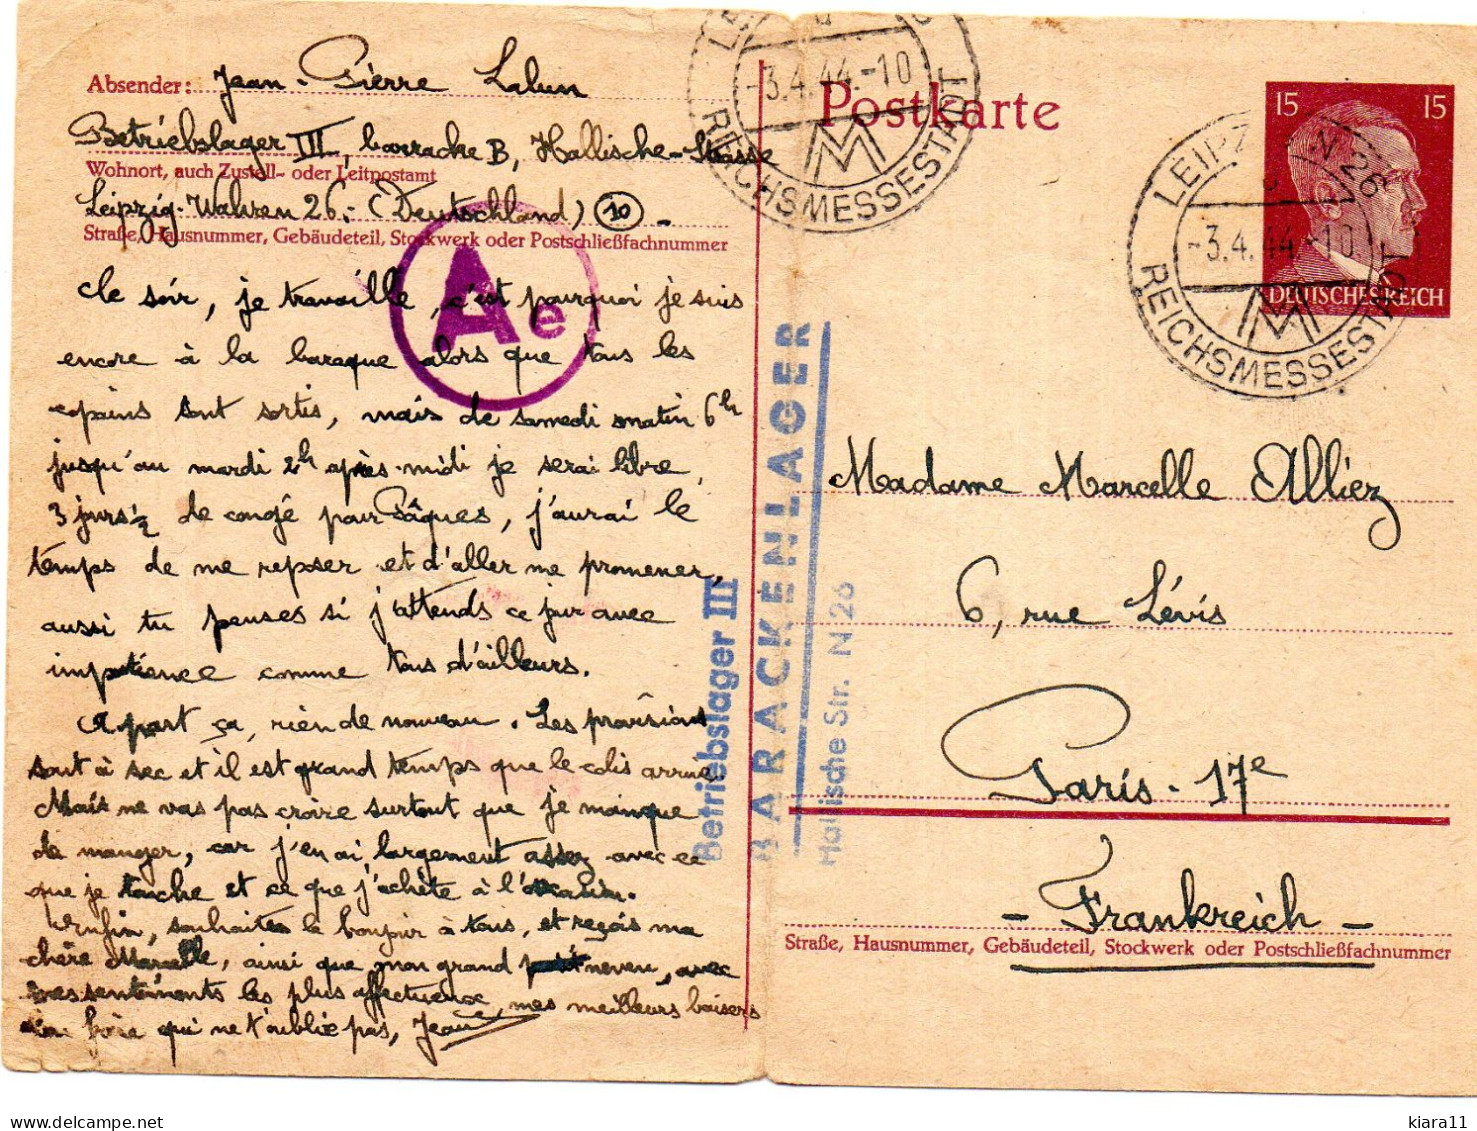 Absender: Jean-Pierre Lalun
Betriebslager III, barracke B, Hallische-Strasse
Wohnort, auch Zustell- oder Leitpostamt
Leipzig-Wahren 26.- (Deutschland) 10 -
Straße, Hausnummer, Gebäudeteil, Stockwerk oder Postschließfachnummer
Ce soir, je travaille, c'est pourquoi je suis
encore à la baraque alors que tous les
copains sont sortis, mais de samedi matin 6h
jusqu'au mardi 2h après-midi je serai libre,
3 jours½ de congé pour Pâques, j'aurai le
temps de me reposer et d'aller me promener,
aussi tu penses si j'attends ce jour avec
impatience comme tous d'ailleurs.
A part ça, rien de nouveau. Les provisions
sont à sec et il est grand temps que le colis arrive.
Mais ne vas pas croire surtout que je manque
de manger, car j'en ai largement assez avec ce
que je touche et ce que j'achète à l'occasion.
Enfin, souhaites le bonjour à tous, et reçois ma
chère Marcelle, ainsi que mon grand neveu, avec
mes sentiments les plus affectueux, mes meilleurs baisers
Ton frère qui ne t'oublie pas, Jean
Ae
Betriebslager III
BARACKENLAGER
Hallische Str. N 26
Postkarte
-3.4.44.-10
REICHSMESSESTADT
M
LEIPZIG N 26
-3.4.44.-10
M
REICHSMESSESTADT
15 15
DEUTSCHES REICH
Madame Marcelle Alliez
6, rue Lévis
Paris-17e
- Frankreich -
Straße, Hausnummer, Gebäudeteil, Stockwerk oder Postschließfachnummer
delcampe.net
kiara11